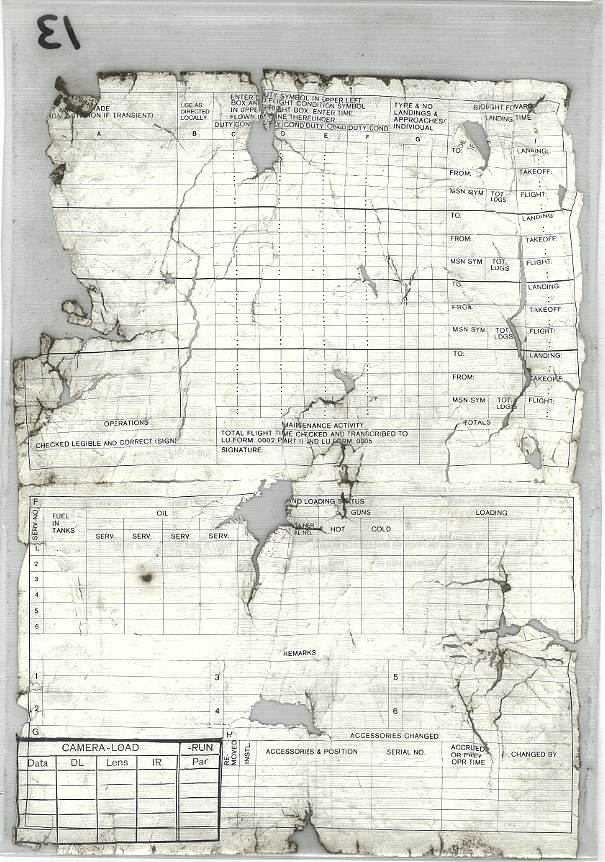 13
ADE
(SIGN & STATION IF TRANSIENT)
USE AS
DIRECTED
LOCALLY
ENTER DUTY SYMBOL IN UPPER LEFT
BOX AND FLIGHT CONDITION SYMBOL
IN UPPER RIGHT BOX. ENTER TIME
FLOWN IN LINE THEREUNDER
TYPE & NO.
LANDINGS &
APPROACHES/
INDIVIDUAL
BROUGHT FORWARD
LANDING TIME
A B C D E F G
DUTY COND DUTY COND DUTY COND DUTY COND
TO: LANDING:
FROM: TAKEOFF:
MSN SYM TOT LDGS FLIGHT:
TO: LANDING:
FROM: TAKEOFF:
MSN SYM TOT LDGS FLIGHT:
TO: LANDING
FROM: TAKEOFF
MSN SYM TOT LDGS FLIGHT:
TO: LANDING:
FROM: TAKEOFF
MSN SYM TOT LDGS FLIGHT:
OPERATIONS
MAINTENANCE ACTIVITY
TOTALS
TOTAL FLIGHT TIME CHECKED AND TRANSCRIBED TO
LU.FORM 0002 PART II AND LU.FORM 0005
CHECKED LEGIBLE AND CORRECT (SIGN)
SIGNATURE:
F
ND LOADING STATUS
SERV NO.
FUEL
IN
TANKS
OIL
GUNS
LOADING
SERV. SERV. SERV. SERV.
HOT COLD
1.
2
3
4
5
6
REMARKS
1 3 5
2 4 6
G
H
ACCESSORIES CHANGED
CAMERA-LOAD -RUN
RE-
MOVED
INSTL.
ACCESSORIES & POSITION
SERIAL NO.
ACCRUED
OR PREV
OPR TIME
CHANGED BY
Data DL Lens IR Par